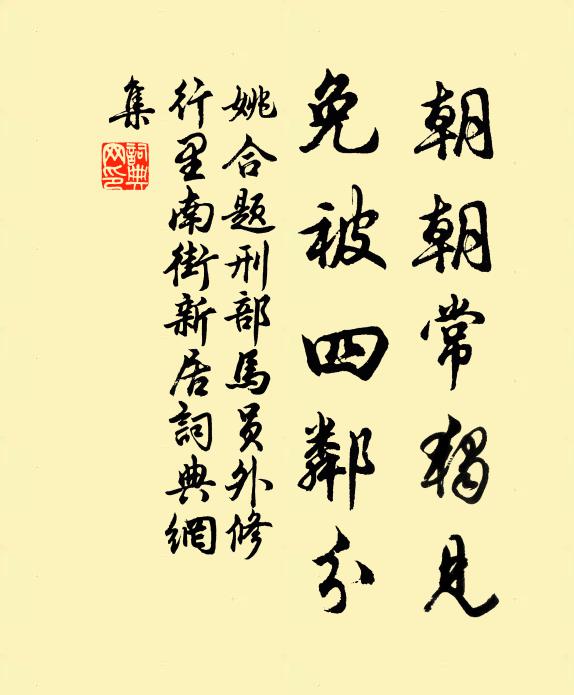 朝朝常獨見
免被四鄰分
姚合題刑部馬員外修
行里南街新居詞典網
集
詞典
网印